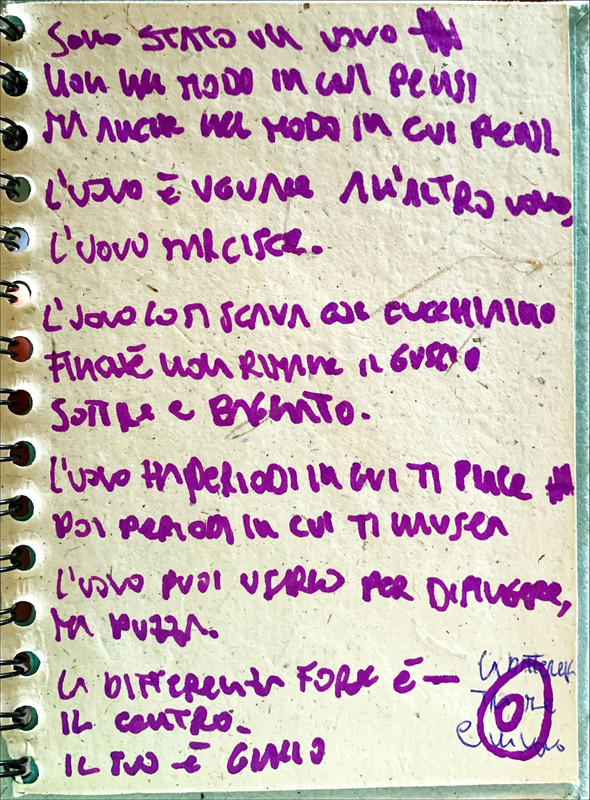 Sono STATO un uovo
Non nel MODO IN CUI PENSI
MA ANCHE NEL MODO IN CUI PENSI.
L'UOVO È UGUALE ALL'ALTRO UOVO,
L'UOVO MARCISCE.
L'UOVO LO SI SCAVA COL CUCCHIAINO
FINCHÉ NON RIMANE IL GUSCIO
SOTTILE E BAGNATO.
L'UOVO HA PERIODI IN CUI TI PIACE
POI PERIODI IN CUI TI NAUSEA
L'UOVO PUOI USARLO PER DIPINGERE,
MA PUZZA.
LA DIFFERENZA FORSE È —
IL CENTRO.
IL TUO È GIALLO